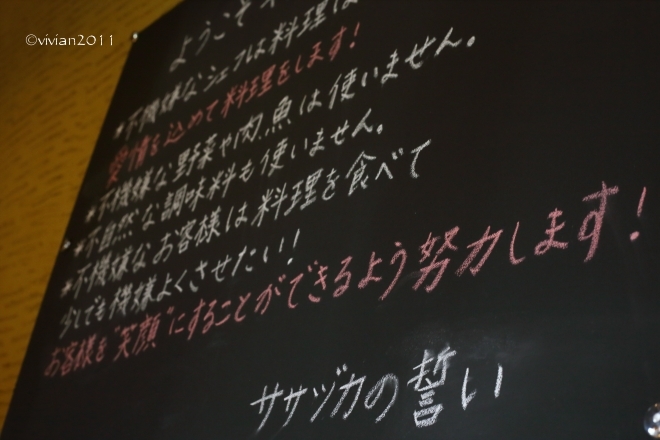 ©vivian2011
ようこそ
*不機嫌なシェフは料理は
愛情を込めて料理をします!
*不機嫌な野菜や肉、魚は使いません。
*不自然な調味料も使いません。
*不機嫌なお客様は料理を食べて
少しでも機嫌よくさせたい!
お客様を"笑顔"にすることができるよう努力します!
ササヅカの誓い